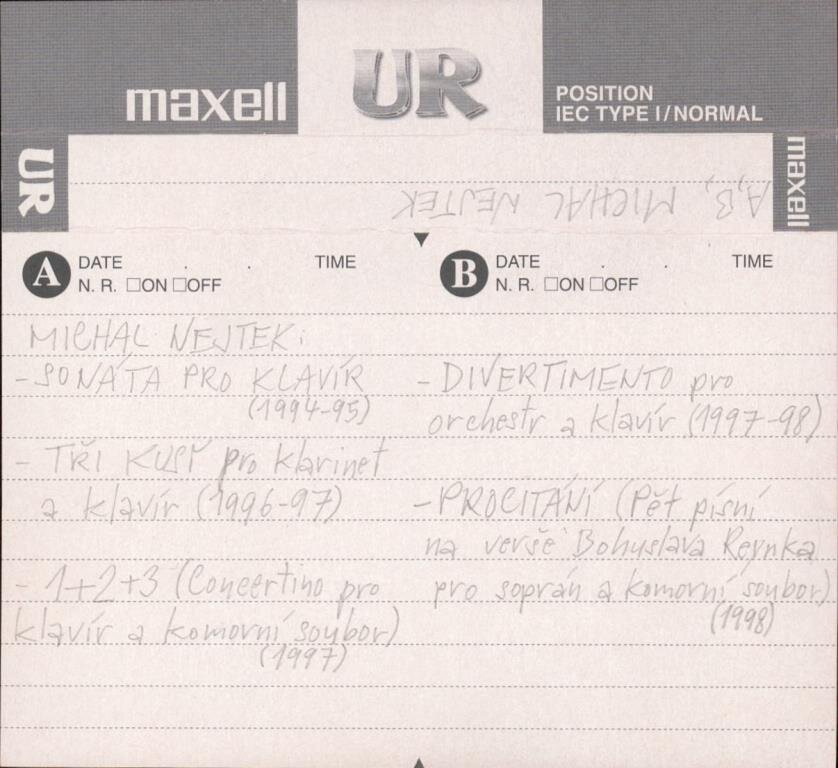 maxell
UR
POSITION
IEC TYPE I/NORMAL
UR
maxell
A,B, MICHAL NEJTEK
A DATE . . TIME
N. R. □ON □OFF
MICHAL NEJTEK:
- SONÁTA PRO KLAVÍR
(1994-95)
- TŘI KUSY pro klarinet
a klavír (1996-97)
- 1+2+3 (Concertino pro
klavír a komorní soubor)
(1997)
B DATE . . TIME
N. R. □ON □OFF
- DIVERTIMENTO pro
orchestr a klavír (1997-98)
- PROCITÁNÍ (Pět písní
na verše Bohuslava Reynka
pro soprán a komorní soubor)
(1998)